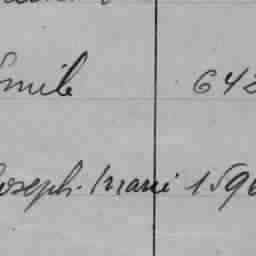 Emile 642
Joseph-Marie 1596